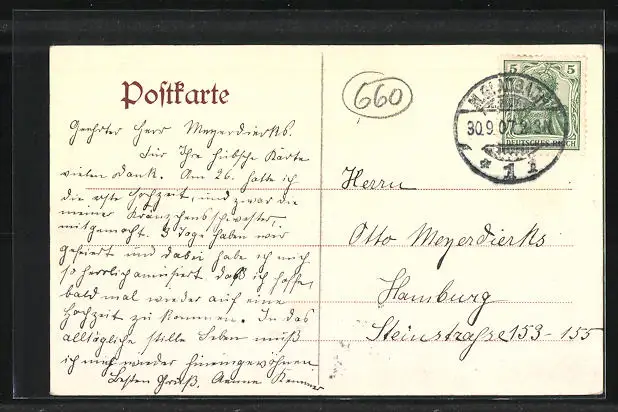 Postkarte
660
5 5
M. GLADBACH
30.9.07
DEUTSCHES REICH
* 1 i
Geehrter Herr Meyerdierks.
Für Ihre hübsche Karte
vielen Dank. Am 26. hatte ich
die erste Hochzeit, und zwar die
meiner Kränzchensschwester,
mitgemacht. 3 Tage haben wir
gefeiert und dabei habe ich mich
so herrlich amüsiert, daß ich hoffe,
bald mal wieder auf eine
Hochzeit zu kommen. In das
alltägliche stille Leben muß
ich mich wieder hineingewöhnen
Besten Gruß. Aenne
Herrn
Otto Meyerdierks
Hamburg
Steinstraße 153-155